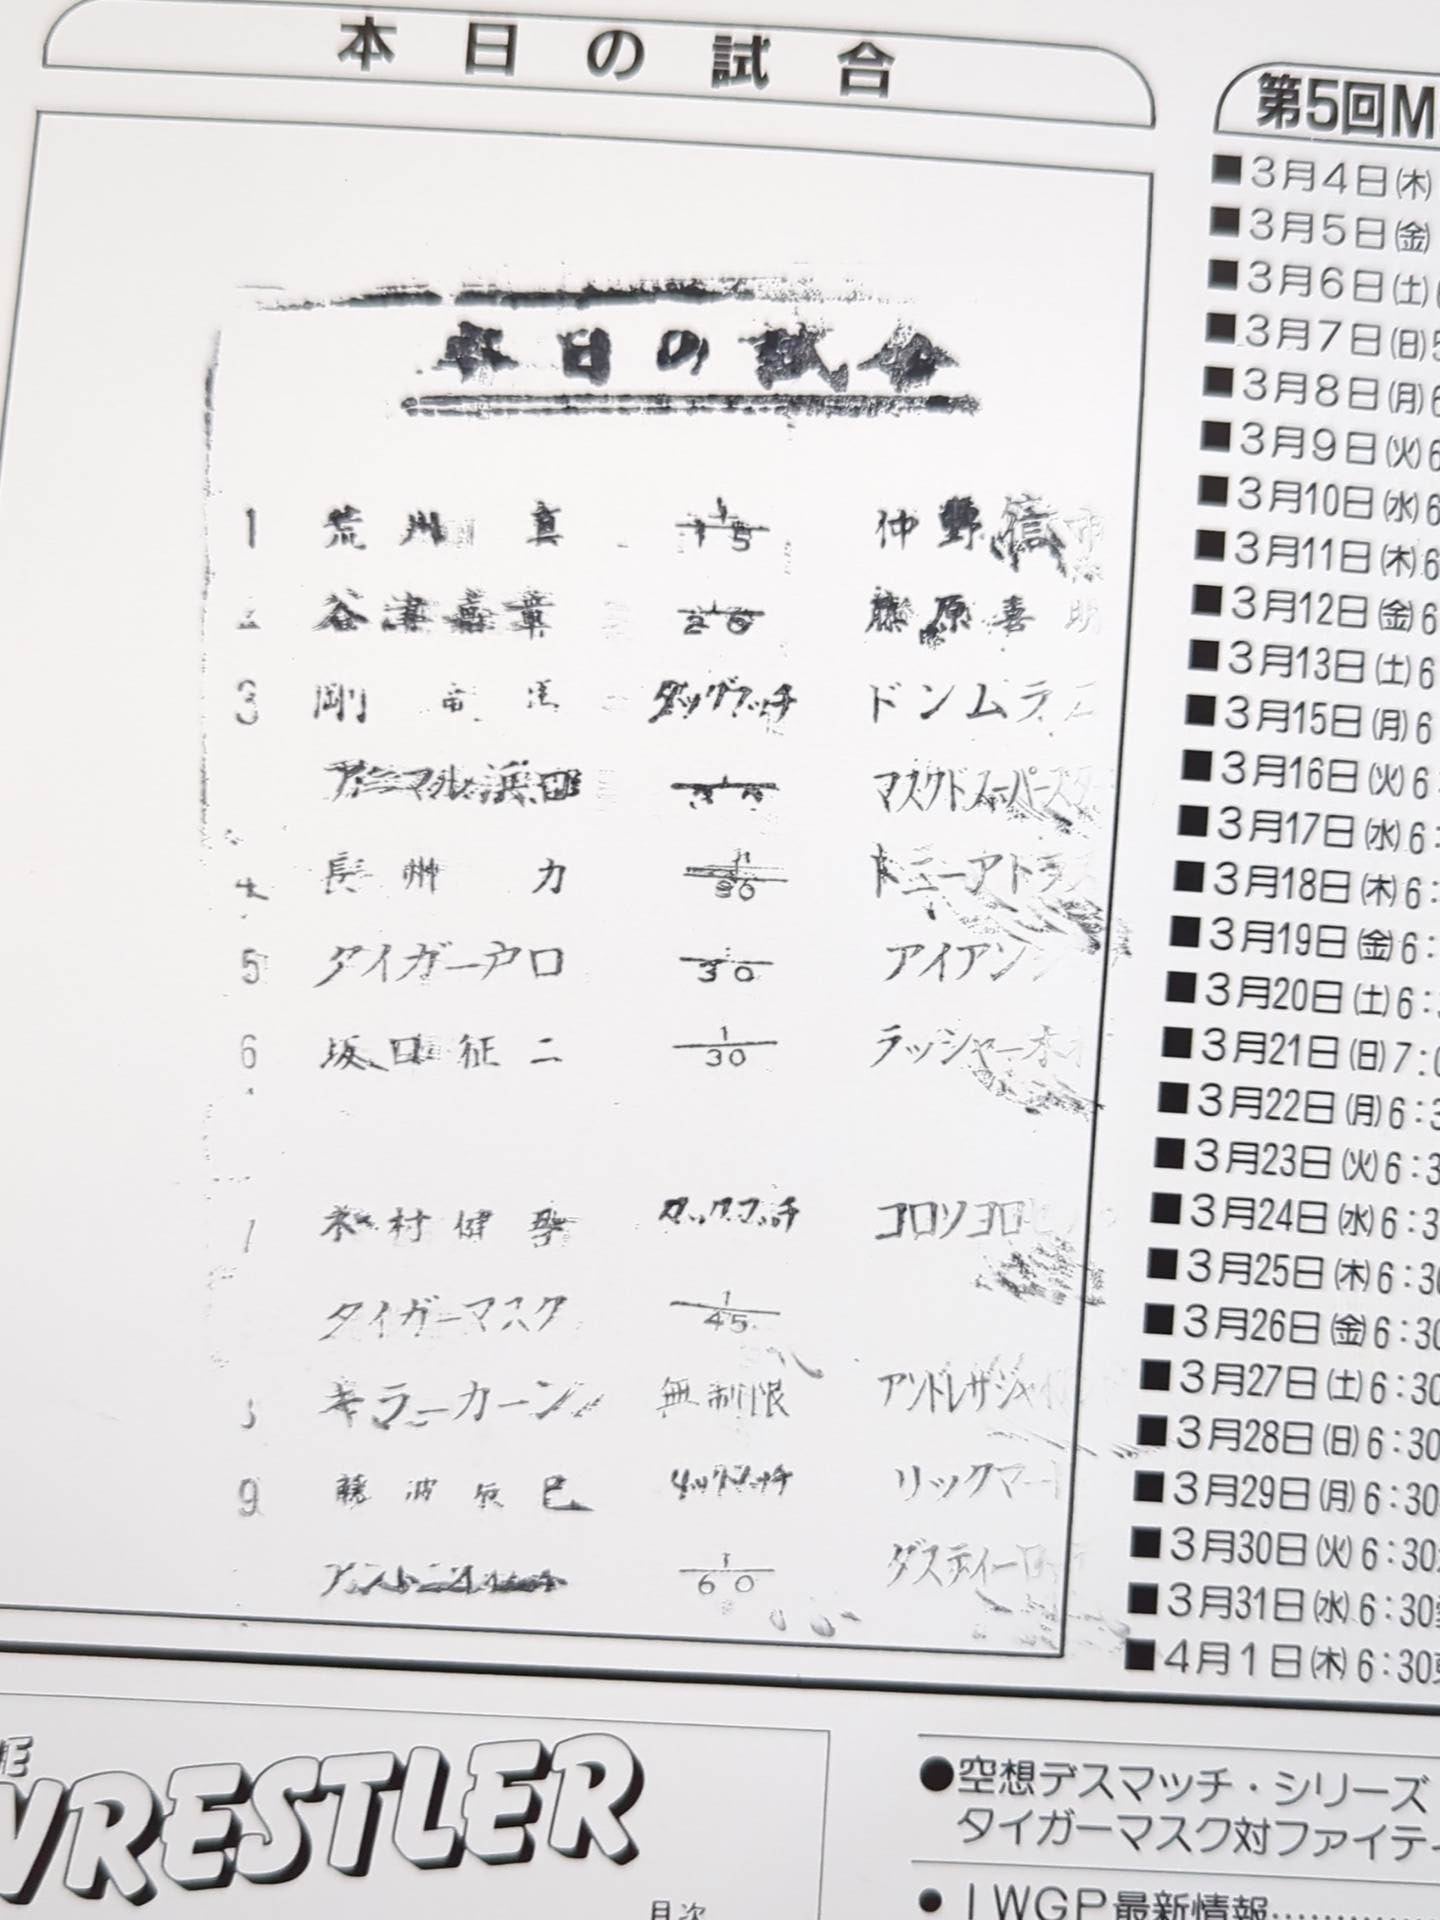 本日の試合
本日の試合
1 荒川 真 1/15 仲野信市
2 谷津嘉章 1/20 藤原喜明
3 剛 竜馬 タッグマッチ ドンムラコ
アニマル浜口 マスクドスーパースター
4 長州 力 1/30 トニーアトラス
5 タイガー戸口 1/30 アイアン
6 坂口征二 1/30 ラッシャー木村
木村健吾 タッグマッチ コロソコロ
タイガーマスク 1/45
キラーカーン 無制限 アンドレザジャイ
9 藤波辰巳 タッグマッチ リックマー
アントニオ 1/60 ダスティーロ
第5回M
■3月4日(木)
■3月5日(金)
■3月6日(土)
■3月7日(日)5
■3月8日(月)6
■3月9日(火)6
■3月10日(水)6
■3月11日(木)6
■3月12日(金)6
■3月13日(土)6
■3月15日(月)6
■3月16日(火)6:
■3月17日(水)6:
■3月18日(木)6:
■3月19日(金)6:
■3月20日(土)6:3
■3月21日(日)7:0
■3月22日(月)6:3
■3月23日(火)6:3
■3月24日(水)6:3
■3月25日(木)6:30
■3月26日(金)6:30
■3月27日(土)6:30
■3月28日(日)6:30
■3月29日(月)6:30
■3月30日(火)6:30
■3月31日(水)6:30
■4月1日(木)6:30
WRESTLER
目次
●空想デスマッチ・シリーズ
タイガーマスク対ファイティ
●IWGP最新情報………